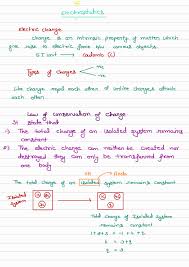 Electrostatics
Electric charge
charge is an intrinsic property of matter which
give rise to electric force b/w various objects.
SI unit → Coulomb (C)
Types of charges
+ve
-ve
Like charges repel each other & unlike charges attract
each other
Law of Conservation of Charge
It state that
1) The total charge of an isolated system remains
constant
2) The electric charge can neither be created nor
destroyed they can only be transferred from
one body
OR
The total charge of an isolated system remains constant
Isolated System
Total Charge of Isolated system
remains constant